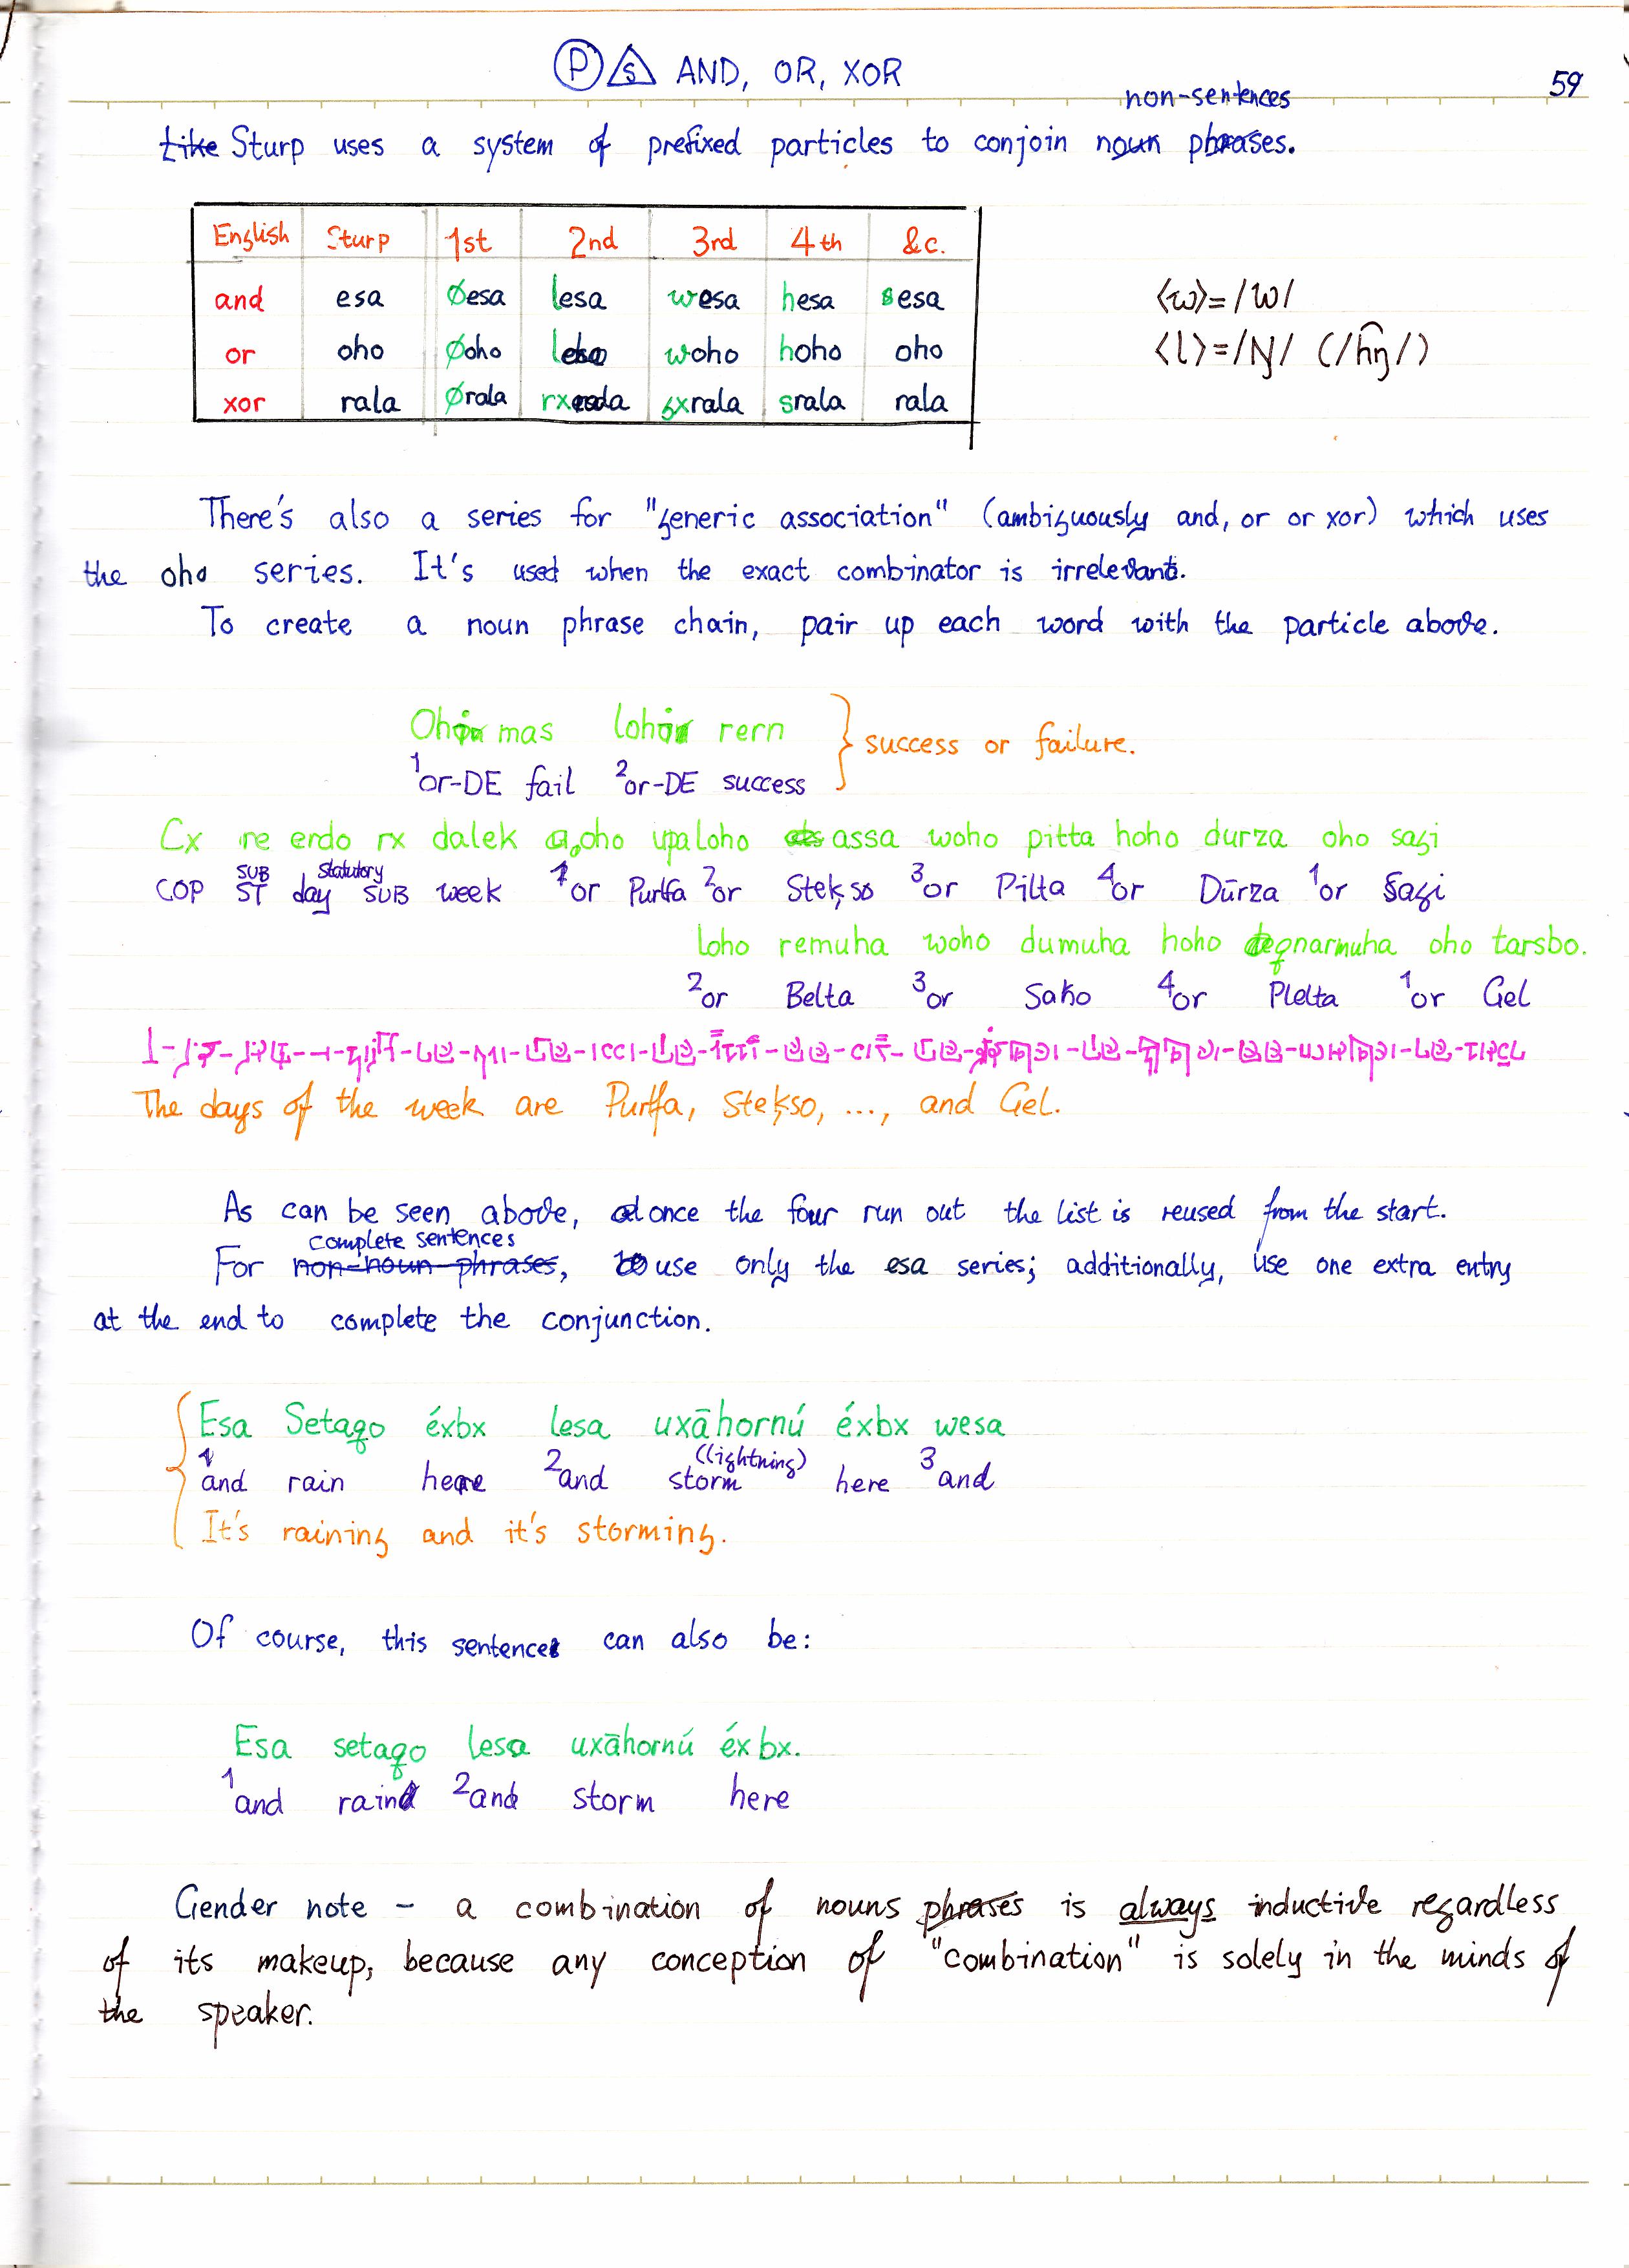 P S AND, OR, XOR
59
non-sentences
Like Sturp uses a system of prefixed particles to conjoin noun phrases.
English Sturp 1st 2nd 3rd 4th &c.
and esa Øesa lesa wesa hesa sesa
or oho Øoho woho hoho oho
xor rala Ørala sxrala srala rala
⟨w⟩=/w/
⟨l⟩=/Ŋ/ (/h͡ŋ/)
There's also a series for "generic association" (ambiguously and, or or xor) which uses
the oho series. It's used when the exact combinator is irrelevant.
To create a noun phrase chain, pair up each word with the particle above.
mas rern
success or failure.
1or-DE fail 2or-DE success
Cx re erdo rx dalek oho upa loho assa woho pitta hoho durza oho sagi
SUB Statutory
COP ST day SUB week 1or Purtfa 2or Stekso 3or Pilta 4or Dūrza 1or Sagi
loho remuha woho dumuha hoho qnarmuha oho tarsbo.
2or Belta 3or Sako 4or Plelta 1or Gel
The days of the week are Purtfa, Stekso, ..., and Gel.
As can be seen above, once the four run out the list is reused from the start.
complete sentences
For non-noun phrases, use only the esa series; additionally, use one extra entry
at the end to complete the conjunction.
Esa Setaqo éxbx lesa uxāhornú éxbx wesa
(lightning)
1and rain here 2and storm here 3and
It's raining and it's storming.
Of course, this sentence can also be:
Esa setaqo lesa uxāhornú éxbx.
1and rain 2and storm here
Gender note - a combination of nouns phrases is always inductive regardless
of its makeup, because any conception of "combination" is solely in the minds of
the speaker.